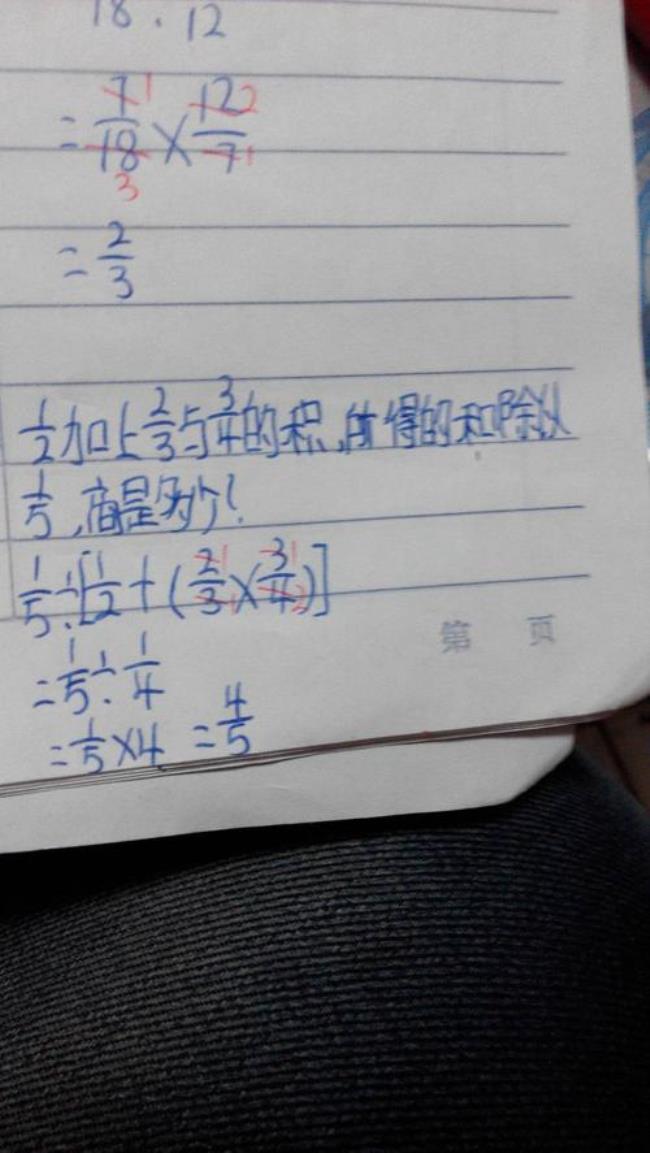 18 . 12
= 7/18 × 12/7 1 2 3 1
= 2/3
1/2加上2/3与3/4的积,所得的和除以
1/5,商是多少?
1/5÷[1/2+(2/3×3/4)] 1 1 1 2
第 页
=1/5÷1/4
=1/5×4 =4/5